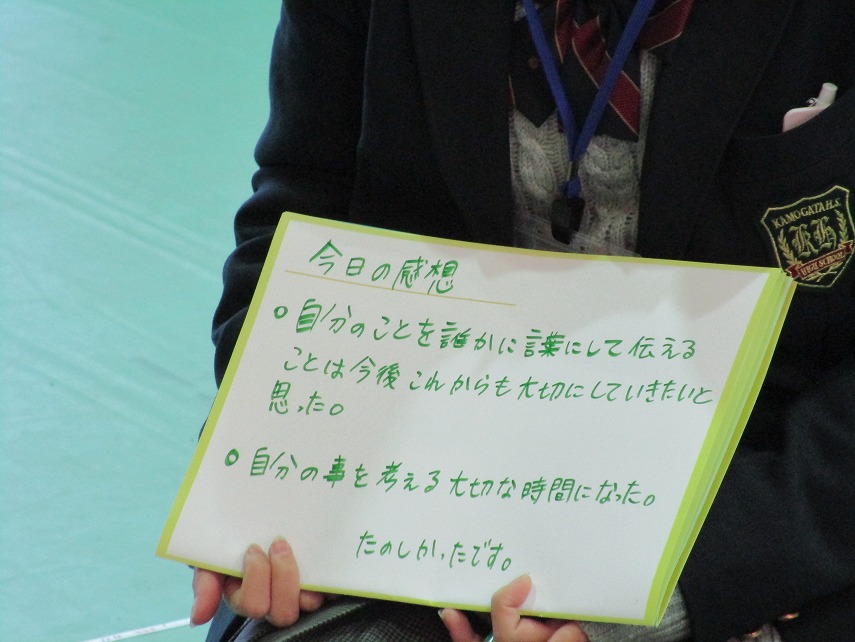 今日の感想
○ 自分のことを誰かに言葉にして伝える
ことは今後これからも大切にしていきたいと
思った。
○ 自分の事を考える大切な時間になった。
たのしかったです。
KAMOGATA H.S.
KH
HIGH SCHOOL